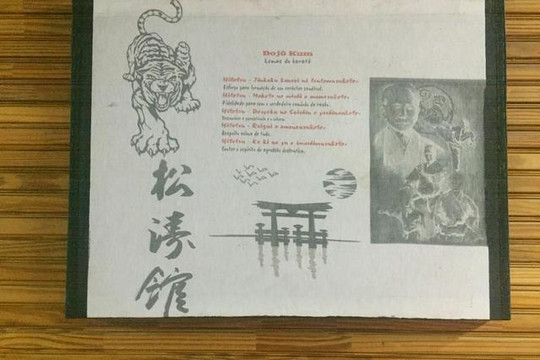 Dojô Kum
Lemas do karatê
Hitotsu - Jinkaku kansei ni tsutomurukoto.
Esforçar para formação do seu carácter
Hitotsu - Makoto no michi o mamorukoto.
Fidelidade para com o verdadeiro caminho da razão.
Hitotsu - Doryoku no Seishin o
Hitotsu - Reigui o omonzurukoto.
Respeito acima de tudo.
Hitotsu - Ke ki no yu o imashimurukoto.
Conter o espírito de agressão destrutivo.
松
濤
館